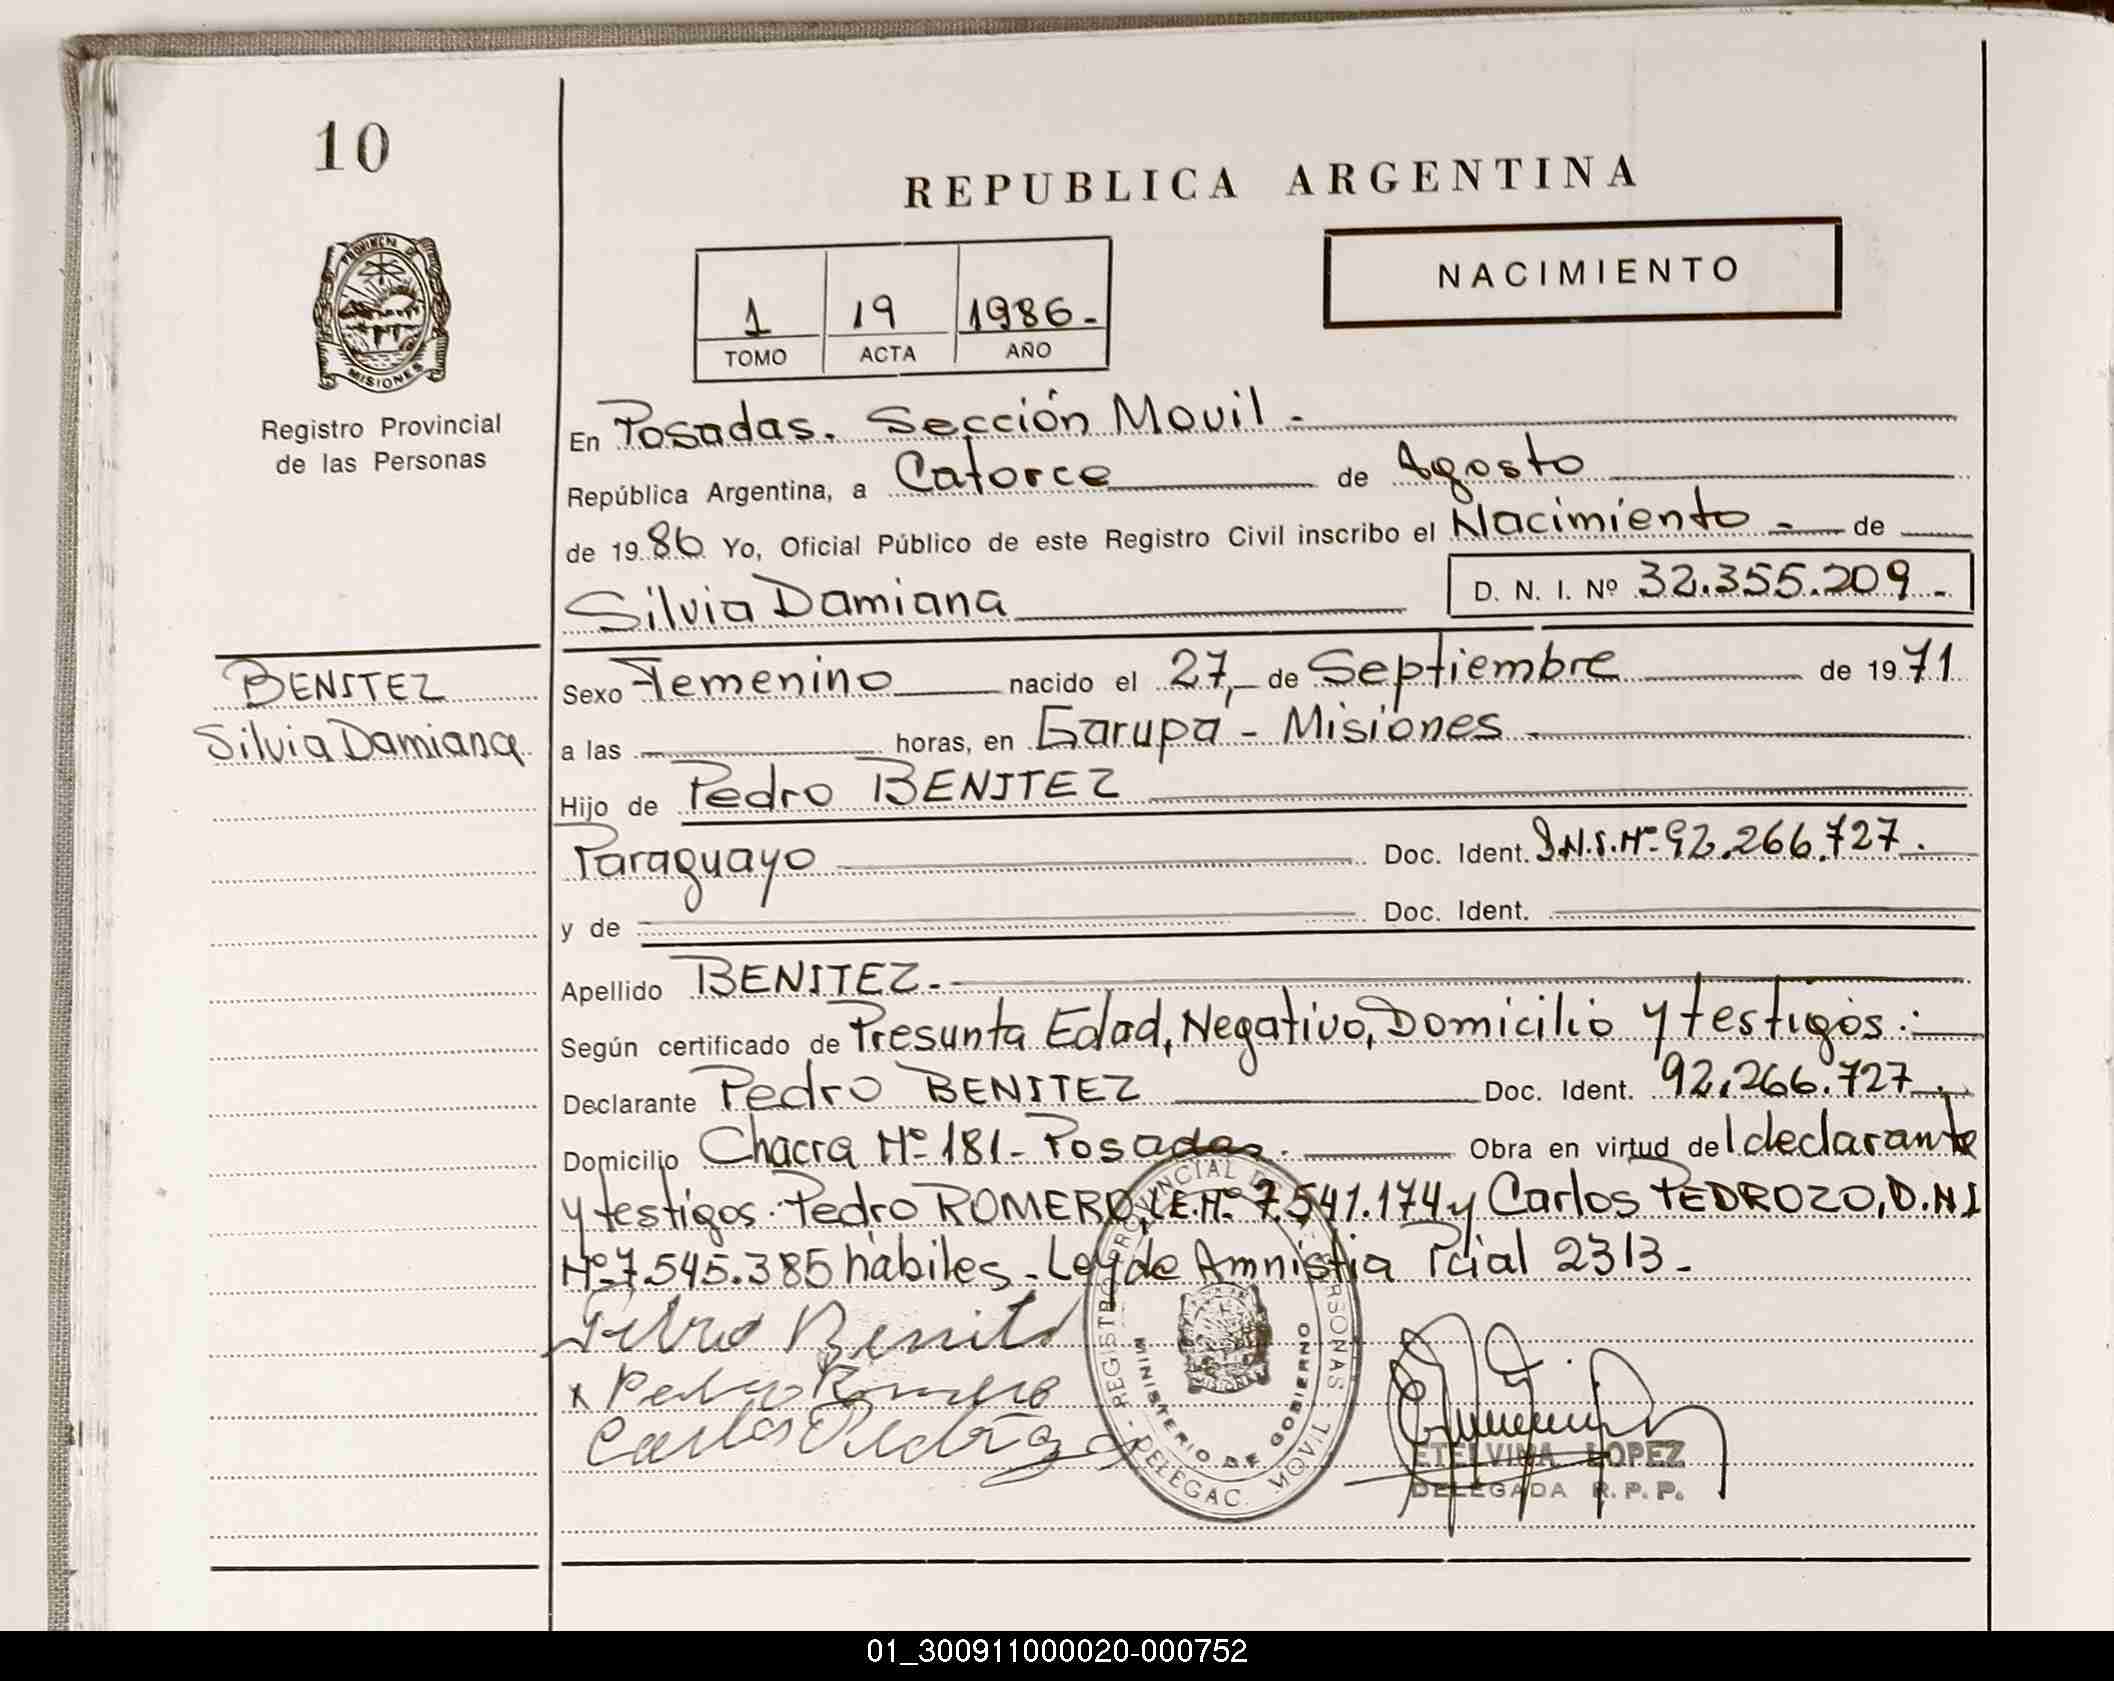 10
REPUBLICA ARGENTINA
PROVINCIA DE
MISIONES
Registro Provincial
de las Personas
NACIMIENTO
1 19 1986-
TOMO ACTA AÑO
En Posadas. Sección Movil -
República Argentina, a Catorce de Agosto
de 1986 Yo, Oficial Público de este Registro Civil inscribo el Nacimiento - de
Silvia Damiana D. N. I. Nº 32.355.209 -
BENITEZ
Silvia Damiana
Sexo Femenino nacido el 27, de Septiembre de 1971
a las horas, en Garupa - Misiones
Hijo de Pedro BENITEZ
Paraguayo Doc. Ident. D.N.I. Nº 92.266.727.
y de Doc. Ident.
Apellido BENITEZ.-
Según certificado de Presunta Edad, Negativo, Domicilio y testigos.-
Declarante Pedro BENITEZ Doc. Ident. 92.266.727.
Domicilio Chacra Nº 181 - Posadas. Obra en virtud del declarante
y testigos: Pedro ROMERO, L.E. Nº 7.541.174 y Carlos PEDROZO, D.N.I
Nº 7.545.385 hábiles - Ley de Amnistia Pcial 2313 -
Pedro Benitez
x Pedro Romero
Carlos Pedrozo
REGISTRO PROVINCIAL DE PERSONAS - DELEGAC. MOVIL
MINISTERIO DE GOBIERNO
MISIONES
ETELVINA LOPEZ
DELEGADA R. P. P.
01_300911000020-000752